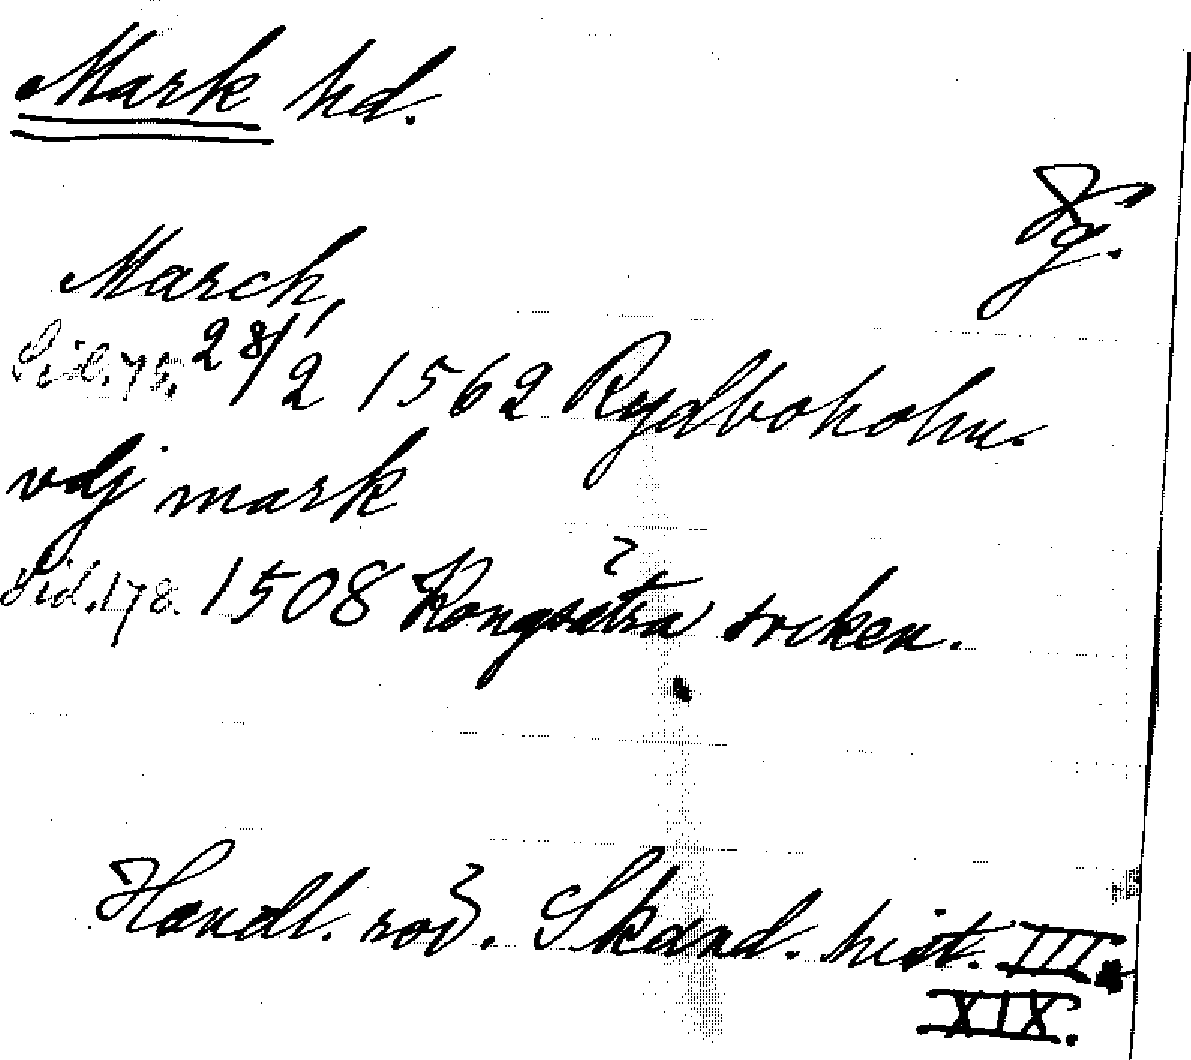 Mark hd.
Vg.
March,
Sid. 78. 28/2 1562 Rydboholm.
vdj mark
Sid. 178. 1508 Kongsätra socken.
Handl. rör. Skand. hist. III.
XIX.